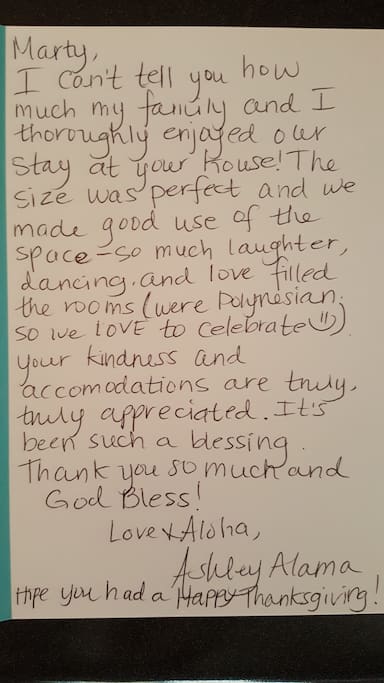 Marty,
I can't tell you how
much my family and I
thoroughly enjoyed our
stay at your house! The
size was perfect and we
made good use of the
space - so much laughter,
dancing, and love filled
the rooms (were Polynesian,
so we LOVE to celebrate ☺)
your kindness and
accomodations are truly,
truly appreciated. It's
been such a blessing.
Thank you so much and
God Bless!
Love & Aloha,
Ashley Alama
Hope you had a Happy Thanksgiving!